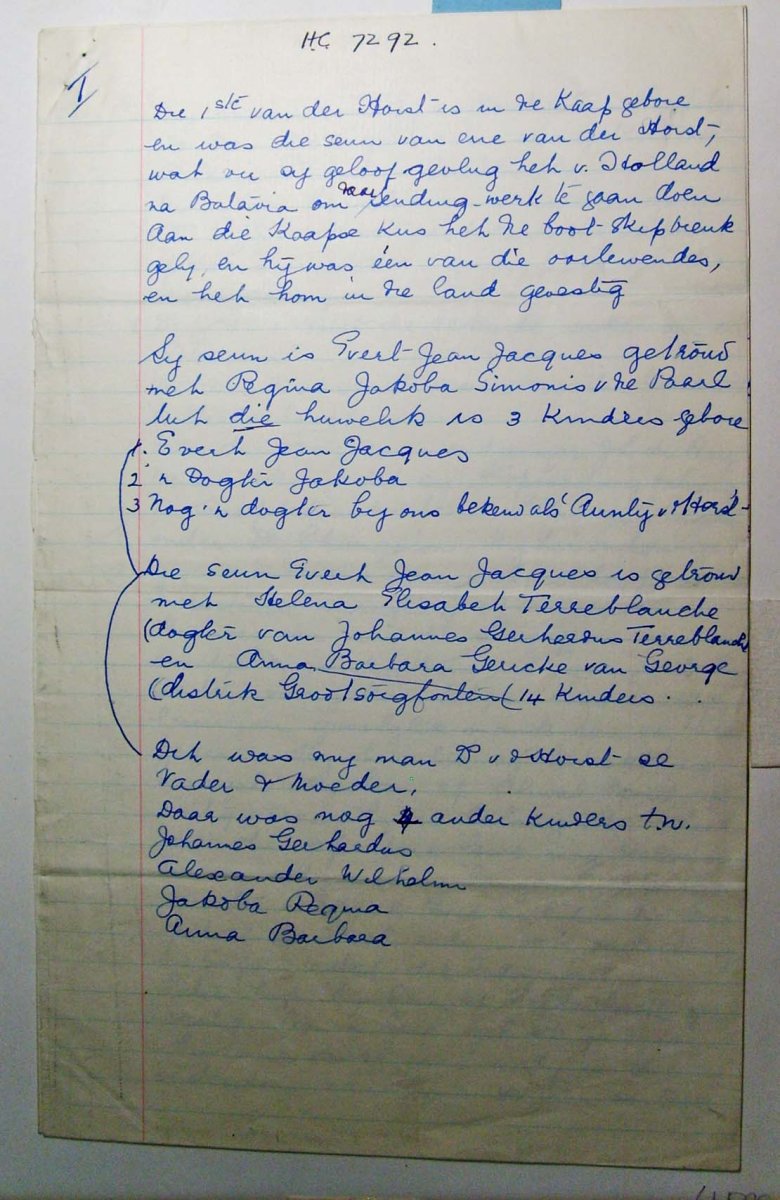 H.C. 7292.
I
Die 1ste van der Horst is in die Kaap gebore
en was die seun van ene van der Horst,
wat vir sy geloof gevlug het v. Holland
na Batavia om daar sending-werk te gaan doen
Aan die Kaapse kus het die boot skipbreuk
gely, en hij was één van die oorlewendes,
en het hom in die land gevestig
Sy seun is Evert Jean Jacques getroud
met Regina Jakoba Simonis v die Paarl
Uit die huwelik is 3 kinders gebore
1. Evert Jean Jacques
2 'n Dogter Jakoba
3 Nog 'n dogter by ons bekend als Aunty v d Horst
Die seun Evert Jean Jacques is getroud
met Helena Elisabeth Terreblanche
(dogter van Johannes Gerhardus Terreblanche
en Anna Barbara Gericke van George
(distrik 14 kinders.
Dit was my man D v d Horst se
Vader & Moeder.
Daar was nog 4 ander kinders t.w.
Johannes Gerhardus
Alexander Wilhelm
Jakoba Regina
Anna Barbara